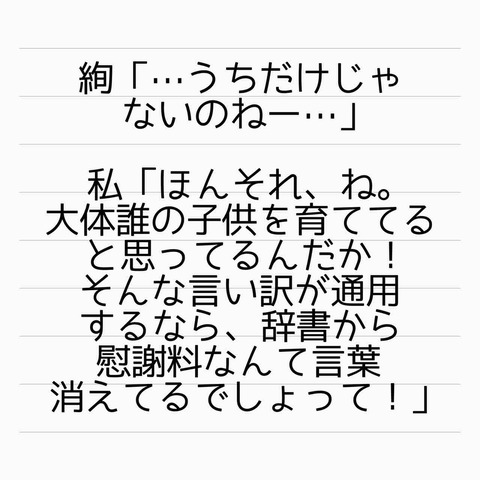 絢「…うちだけじゃ
ないのねー…」
私「ほんそれ、ね。
大体誰の子供を育ててる
と思ってるんだか！
そんな言い訳が通用
するなら、辞書から
慰謝料なんて言葉
消えてるでしょって！」